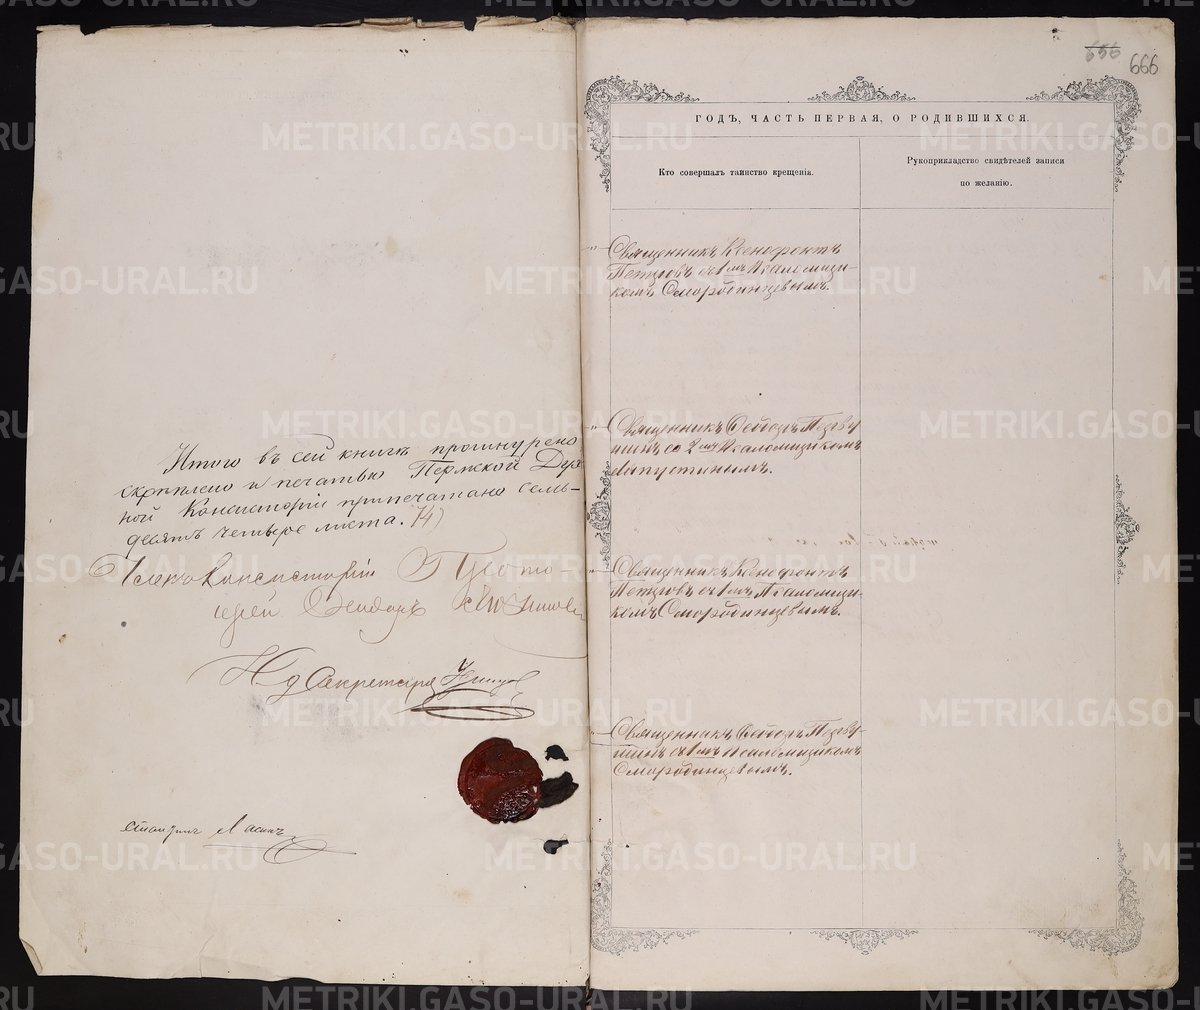 Итого въ сей книгѣ прошнурено
скрѣплено и печатью Пермской Духов-
ной Консисторіи припечатано семь-
десятъ четыре листа. 74)
Членъ Консисторіи Прото-
іерей
Секретаря
666
ГОДЪ, ЧАСТЬ ПЕРВАЯ, О РОДИВШИХСЯ.
Кто совершалъ таинство крещенія.
Рукоприкладство свидѣтелей записи
по желанію.
Священникъ Ксенофонтъ
Петровъ съ 1мъ Псаломщи-
комъ Смородинцевымъ.
Священникъ Ѳеодоръ Перву-
шинъ со 2мъ Псаломщикомъ
Лапустинымъ.
Священникъ Ксенофонтъ
Петровъ съ 1мъ Псаломщи-
комъ Смородинцевымъ.
Священникъ Ѳеодоръ Перву-
шинъ съ 1мъ псаломщикомъ
Смородинцевымъ.
METRIKI.GASO-URAL.RU